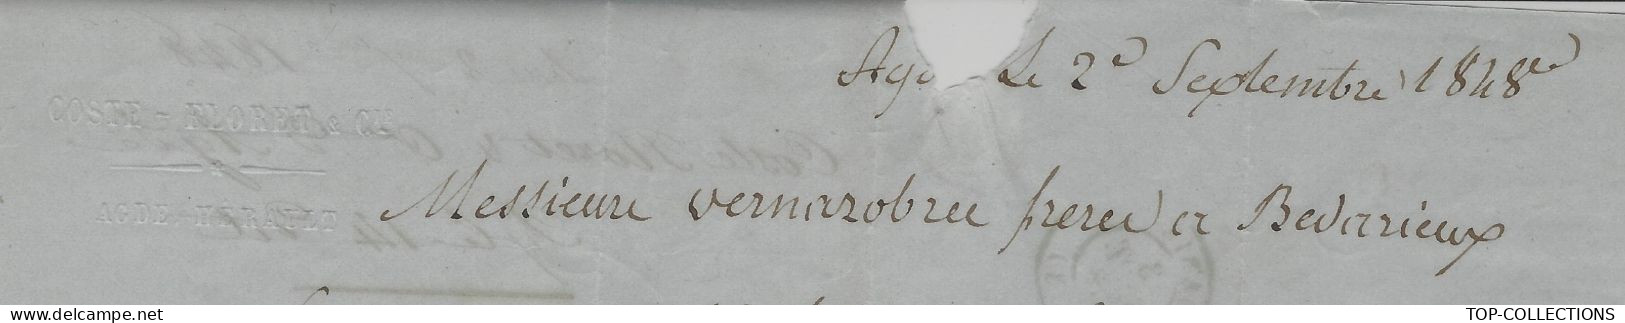 Agd Le 2e Septembre 1848
COSTE - FLORET & CIE
Messieurs Vernazobres freres a Bedarieux
AGDE - HERAULT
www.delcampe.net TOP-COLLECTIONS